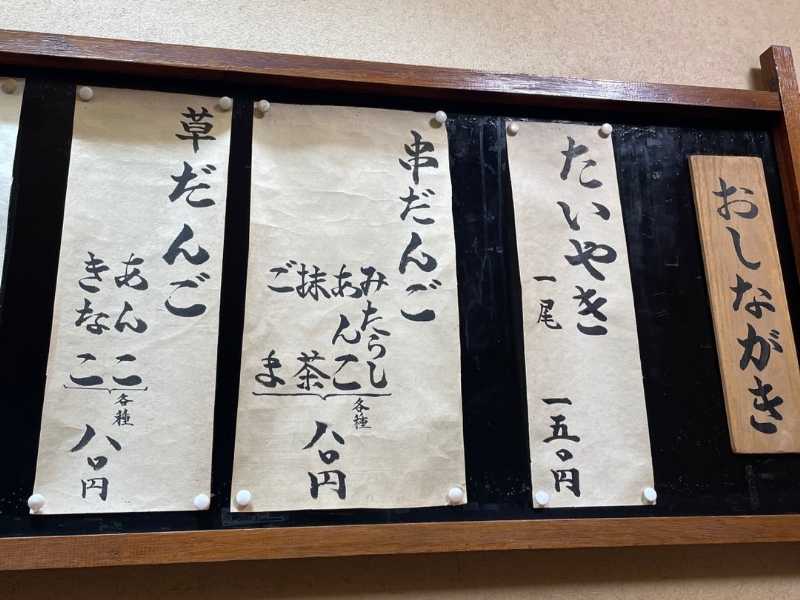 おしながき
たいやき
一尾 一五〇円
串だんご
みたらし
あんこ
抹茶
ごま
各種
八〇円
草だんご
あんこ
きなこ
各種
八〇円